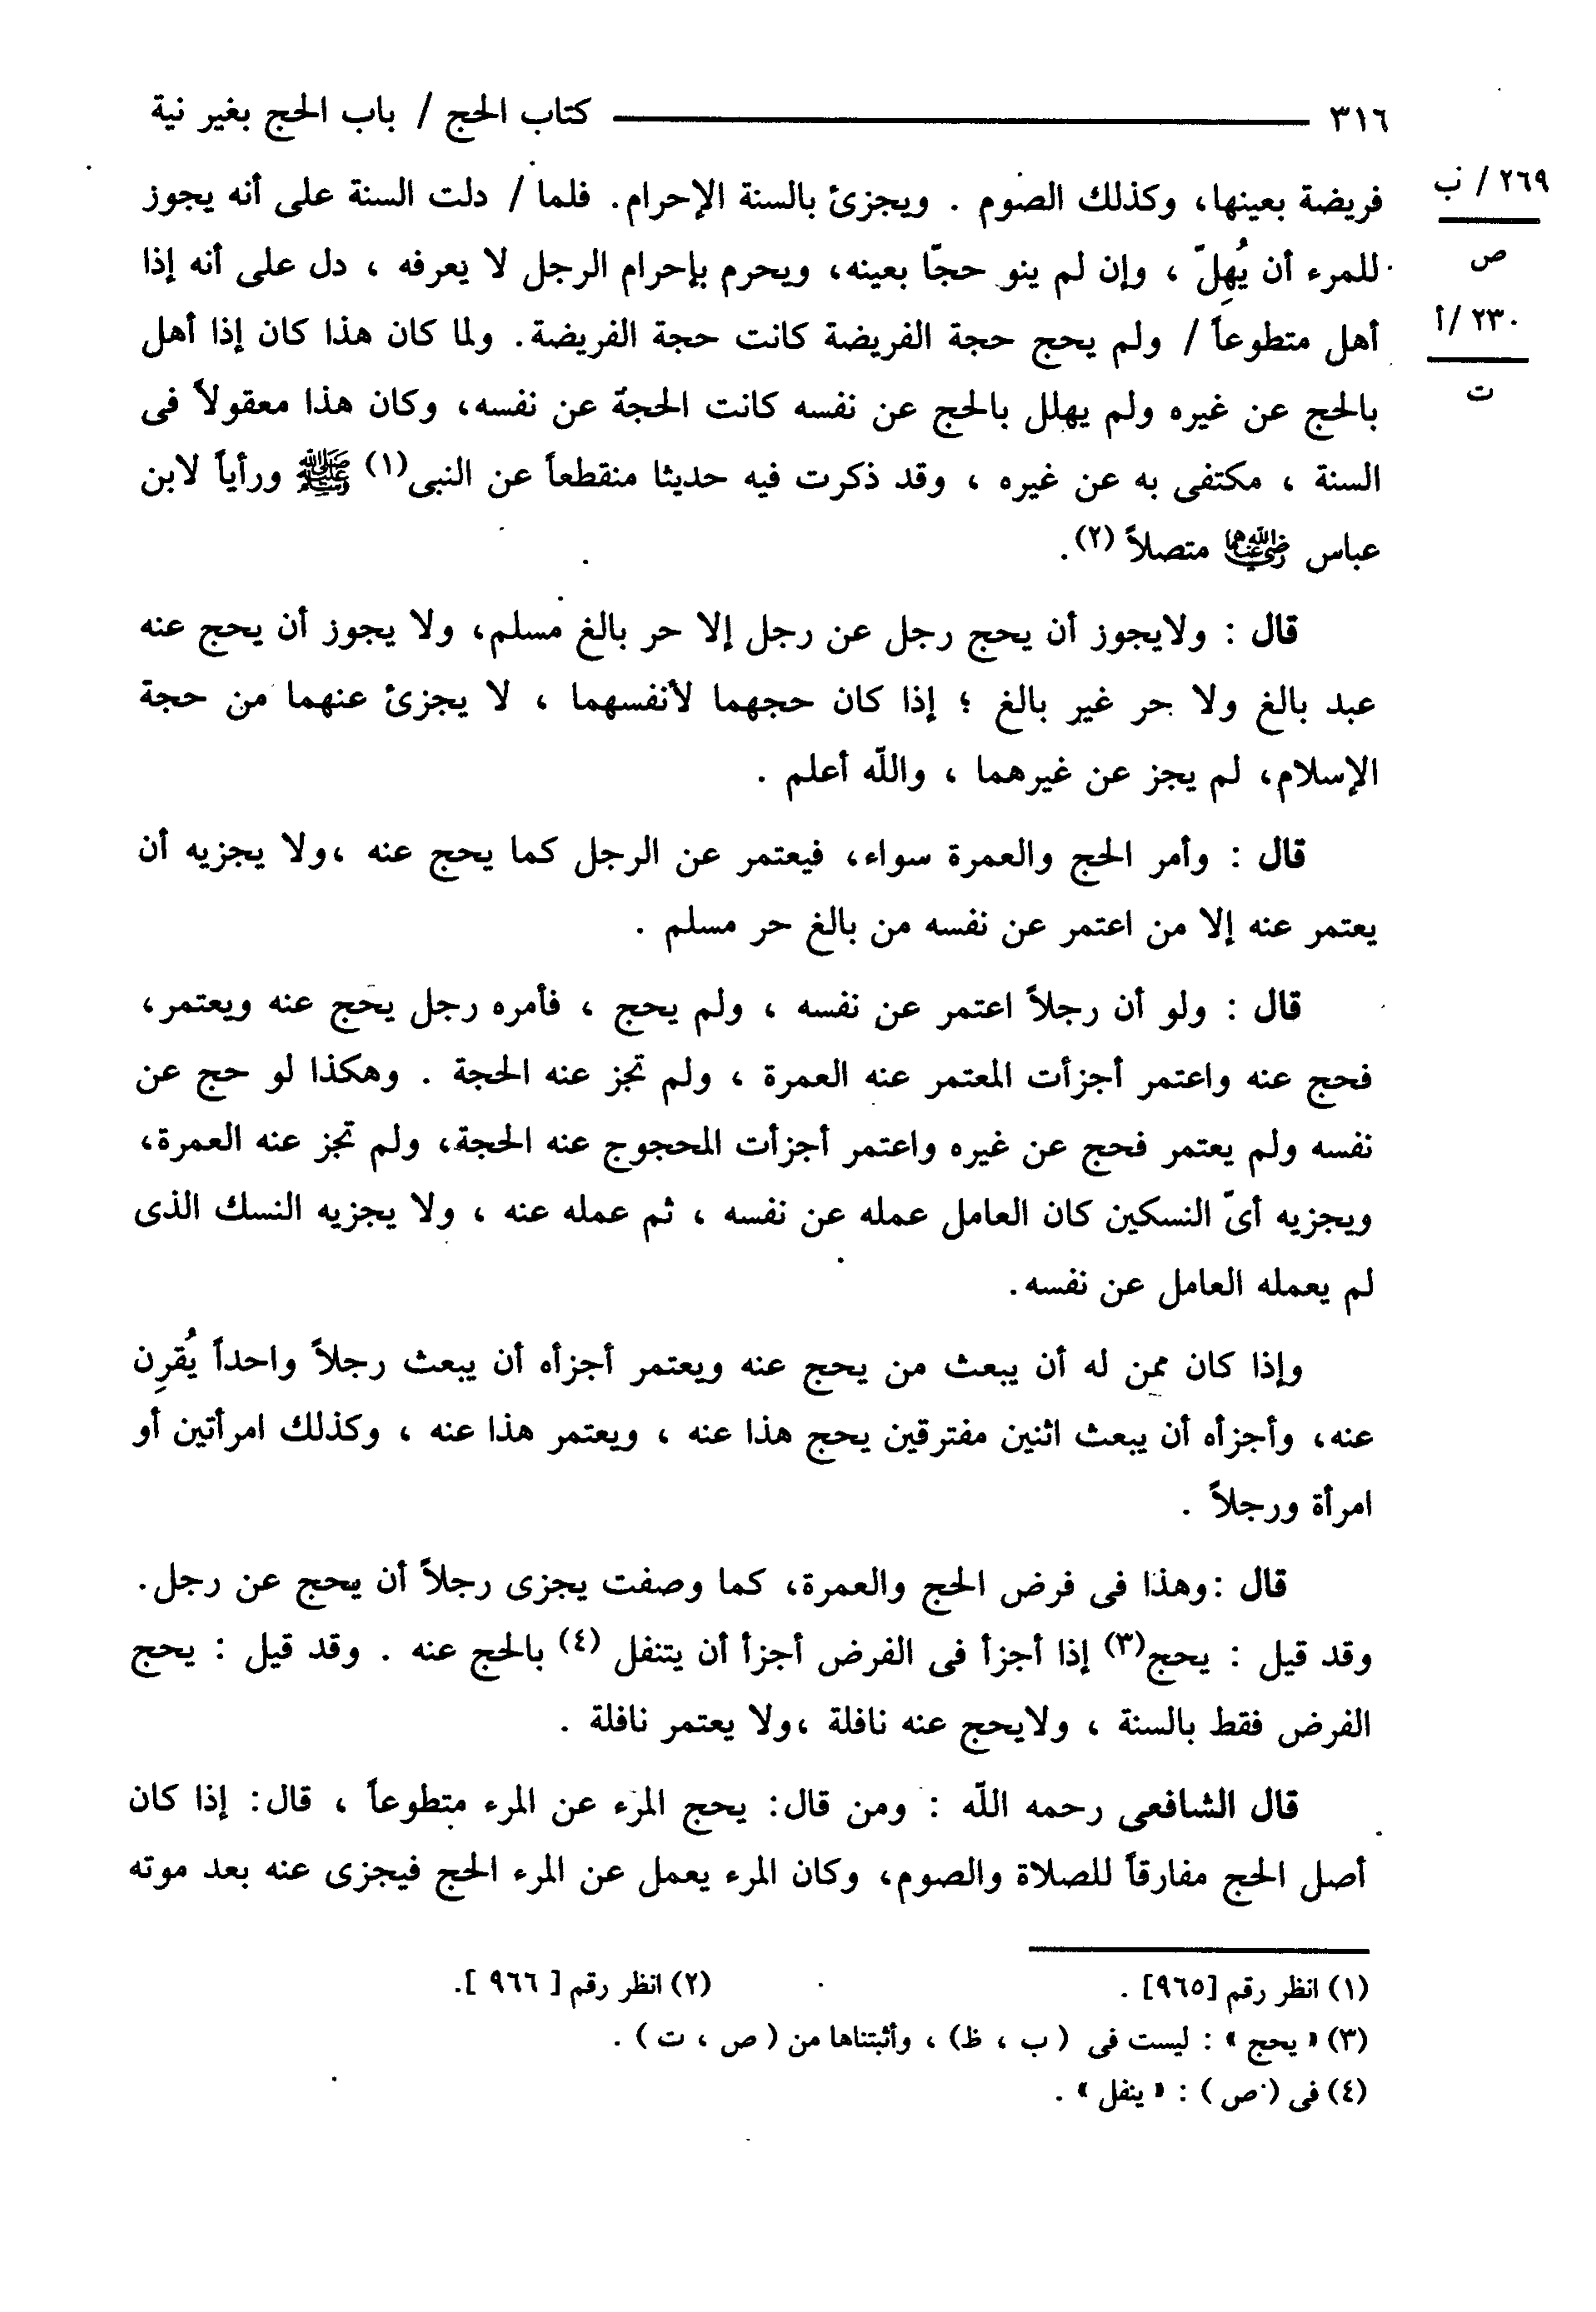 ٣١٦ ــــــــ كتاب الحج / باب الحج بغير نية
٢٦٩ / ب
ص
٢٣٠ / أ
ت
فريضة بعينها، وكذلك الصوم . ويجزئ بالسنة الإحرام. فلما / دلت السنة على أنه يجوز
للمرء أن يُهِلّ ، وإن لم ينو حجّا بعينه، ويحرم بإحرام الرجل لا يعرفه ، دل على أنه إذا
أهل متطوعاً / ولم يحج حجة الفريضة كانت حجة الفريضة. ولما كان هذا كان إذا أهل
بالحج عن غيره ولم يهلل بالحج عن نفسه كانت الحجة عن نفسه، وكان هذا معقولاً فى
السنة ، مكتفى به عن غيره ، وقد ذكرت فيه حديثا منقطعاً عن النبى(١) ﷺ ورأياً لابن
عباس رضي الله عنهما متصلاً (٢).
قال : ولايجوز أن يحج رجل عن رجل إلا حر بالغ مسلم، ولا يجوز أن يحج عنه
عبد بالغ ولا حر غير بالغ ؛ إذا كان حجهما لأنفسهما ، لا يجزئ عنهما من حجة
الإسلام، لم يجز عن غيرهما ، واللّه أعلم .
قال : وأمر الحج والعمرة سواء، فيعتمر عن الرجل كما يحج عنه ،ولا يجزيه أن
يعتمر عنه إلا من اعتمر عن نفسه من بالغ حر مسلم .
قال : ولو أن رجلاً اعتمر عن نفسه ، ولم يحج ، فأمره رجل يحج عنه ويعتمر،
فحج عنه واعتمر أجزأت المعتمر عنه العمرة ، ولم تجز عنه الحجة . وهكذا لو حج عن
نفسه ولم يعتمر فحج عن غيره واعتمر أجزأت المحجوج عنه الحجة، ولم تجز عنه العمرة،
ويجزيه أىّ النسكين كان العامل عمله عن نفسه ، ثم عمله عنه ، ولا يجزيه النسك الذى
لم يعمله العامل عن نفسه.
وإذا كان ممن له أن يبعث من يحج عنه ويعتمر أجزأه أن يبعث رجلاً واحداً يُقرِن
عنه، وأجزأه أن يبعث اثنين مفترقين يحج هذا عنه ، ويعتمر هذا عنه ، وكذلك امرأتين أو
امرأة ورجلاً .
قال :وهذا فى فرض الحج والعمرة، كما وصفت يجزى رجلاً أن يحج عن رجل.
وقد قيل : يحج(٣) إذا أجزأ فى الفرض أجزأ أن يتنفل (٤) بالحج عنه . وقد قيل : يحج
الفرض فقط بالسنة ، ولايحج عنه نافلة ،ولا يعتمر نافلة .
قال الشافعى رحمه اللّه : ومن قال: يحج المرء عن المرء متطوعاً ، قال: إذا كان
أصل الحج مفارقاً للصلاة والصوم، وكان المرء يعمل عن المرء الحج فيجزى عنه بعد موته
(١) انظر رقم [٩٦٥] . (٢) انظر رقم [ ٩٦٦ ].
(٣) « يحج » : ليست فى ( ب ، ظ) ، وأثبتناها من ( ص ، ت ) .
(٤) فى ( ص ) : « ينفل » .